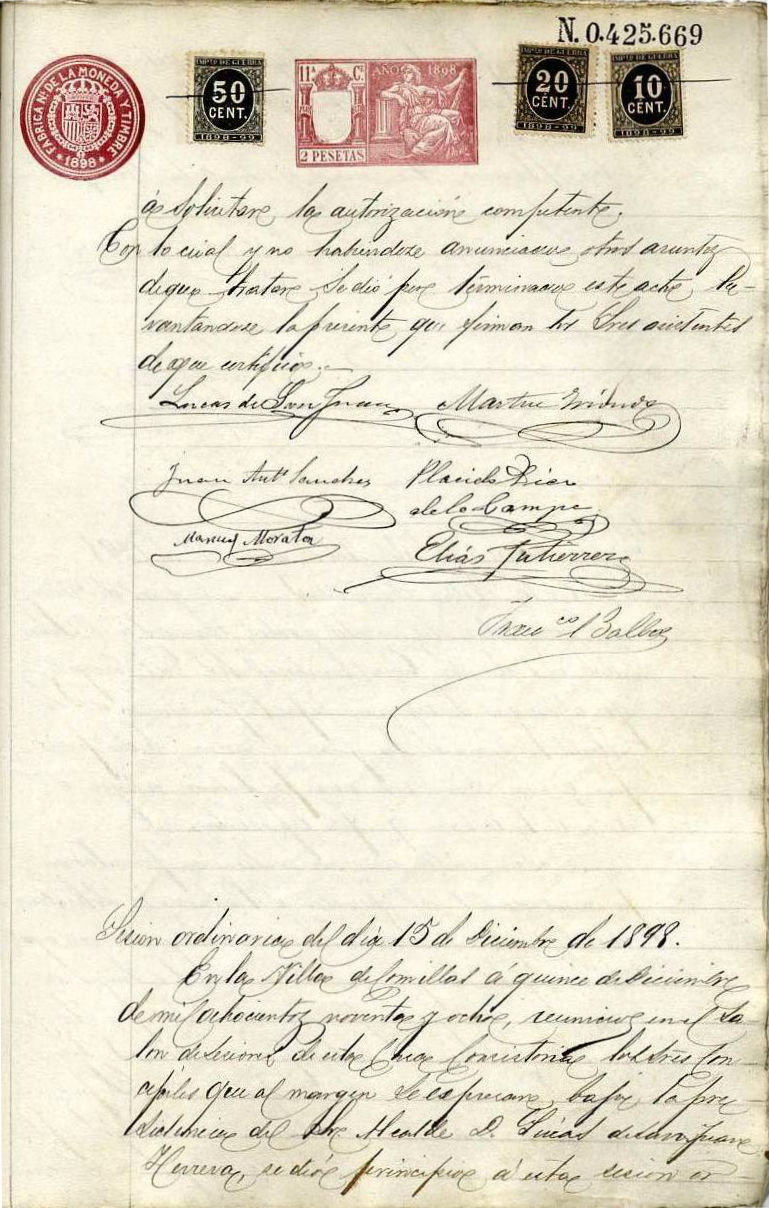 N. 0.425.669
FABRICA Nal. DE LA MONEDA Y TIMBRE
* 1898 *
IMPTO DE GUERRA
50
CENT.
1898-99
11ª Cº
AÑO 1898
2 PESETAS
IMPTO DE GUERRA
20
CENT.
1898-99
IMPTO DE GUERRA
10
CENT.
1898-99
á solicitar la autorización competente.
Con lo cual y no habiendose anunciado otros asuntos
de que tratar se dió por terminado este acto, le-
vantandose la presente que firman los Sres asistentes
de que certifico.-
Lucas de San Juan
Martin
Juan Antº Sanchez
Placido Diez
de la Campa
Manuel Moraton
Elías Gutierrez
Francº Balbas
Sesion ordinaria del día 15 de Diciembre de 1898.
En la Villa de Comillas á quince de Diciembre
de mil ochocientos noventa y ocho, reunidos en el Sa-
lon de sesiones de esta Casa Consistorial los Sres Con-
cejales que al margen se expresan, bajo la pre-
sidencia del Sr Alcalde D. Lúcas de San Juan
Herrera, se dió principio á esta sesion or-